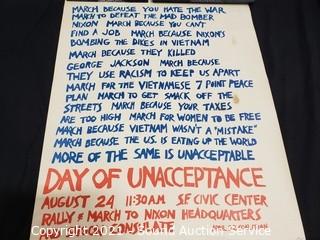 MARCH BECAUSE YOU HATE THE WAR
MARCH TO DEFEAT THE MAD BOMBER
NIXON MARCH BECAUSE YOU CAN'T
FIND A JOB MARCH BECAUSE NIXON'S
BOMBING THE DIKES IN VIETNAM
MARCH BECAUSE THEY KILLED
GEORGE JACKSON MARCH BECAUSE
THEY USE RACISM TO KEEP US APART
MARCH FOR THE VIETNAMESE 7 POINT PEACE
PLAN MARCH TO GET SMACK OFF THE
STREETS MARCH BECAUSE YOUR TAXES
ARE TOO HIGH MARCH FOR WOMEN TO BE FREE
MARCH BECAUSE VIETNAM WASN'T A "MISTAKE"
MARCH BECAUSE THE U.S. IS EATING UP THE WORLD
MORE OF THE SAME IS UNACCEPTABLE
DAY OF UNACCEPTANCE
AUGUST 24 11:30AM SF CIVIC CENTER
RALLY & MARCH TO NIXON HEADQUARTERS
Copyright 2021 - Sound Auction Service